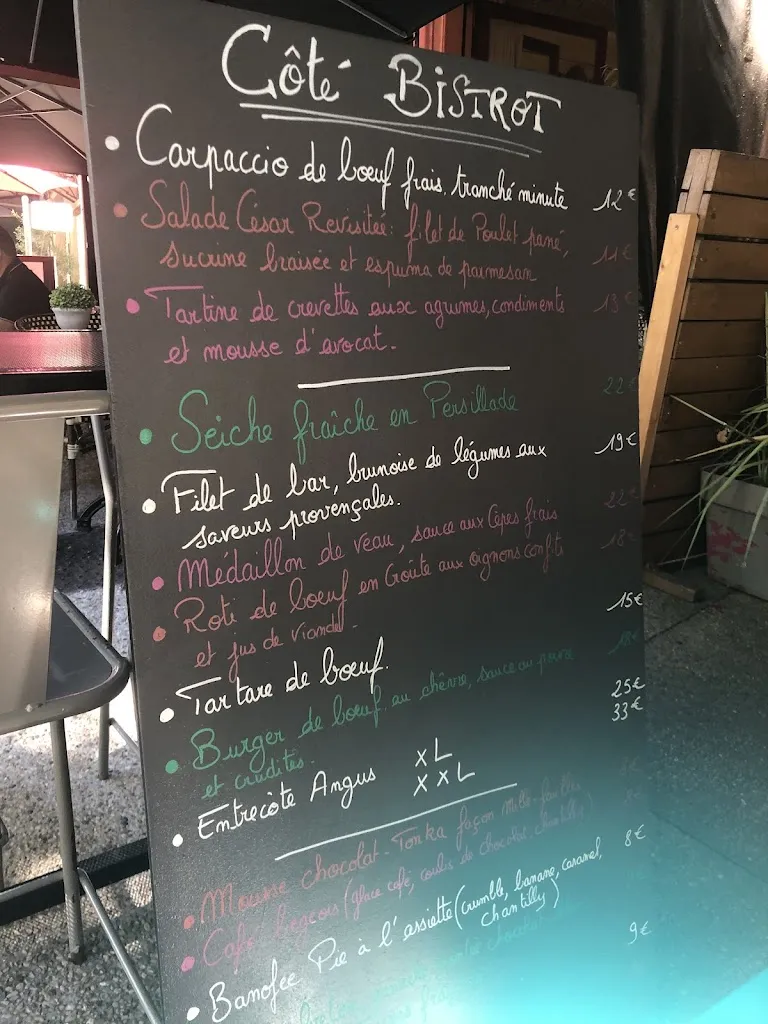 Côté BiSTROT
• Carpaccio de bœuf frais, tranché minute 12€
• Salade César Revisitée: filet de Poulet pané, 11€
sucrine braisée et espuma de parmesan
• Tartine de crevettes aux agrumes, condiments 13€
et mousse d'avocat.
• Seiche fraîche en Persillade 22€
• Filet de bar, brunoise de légumes aux 19€
saveurs provençales.
• Médaillon de veau, sauce aux Cèpes frais 22€
• Roti de bœuf en Croûte aux oignons confits 18€
et jus de viande.
• Tartare de bœuf. 15€
• Burger de bœuf au chèvre, sauce au poivre
et crudités.
• Entrecôte Angus XL 25€
XXL 33€
• Mousse chocolat-Tonka façon
• Café Liégeois (glace café, coulis de chocolat, chantilly)
• Banofee Pie à l'assiette (crumble, banane, caramel, 8€
chantilly)
9€